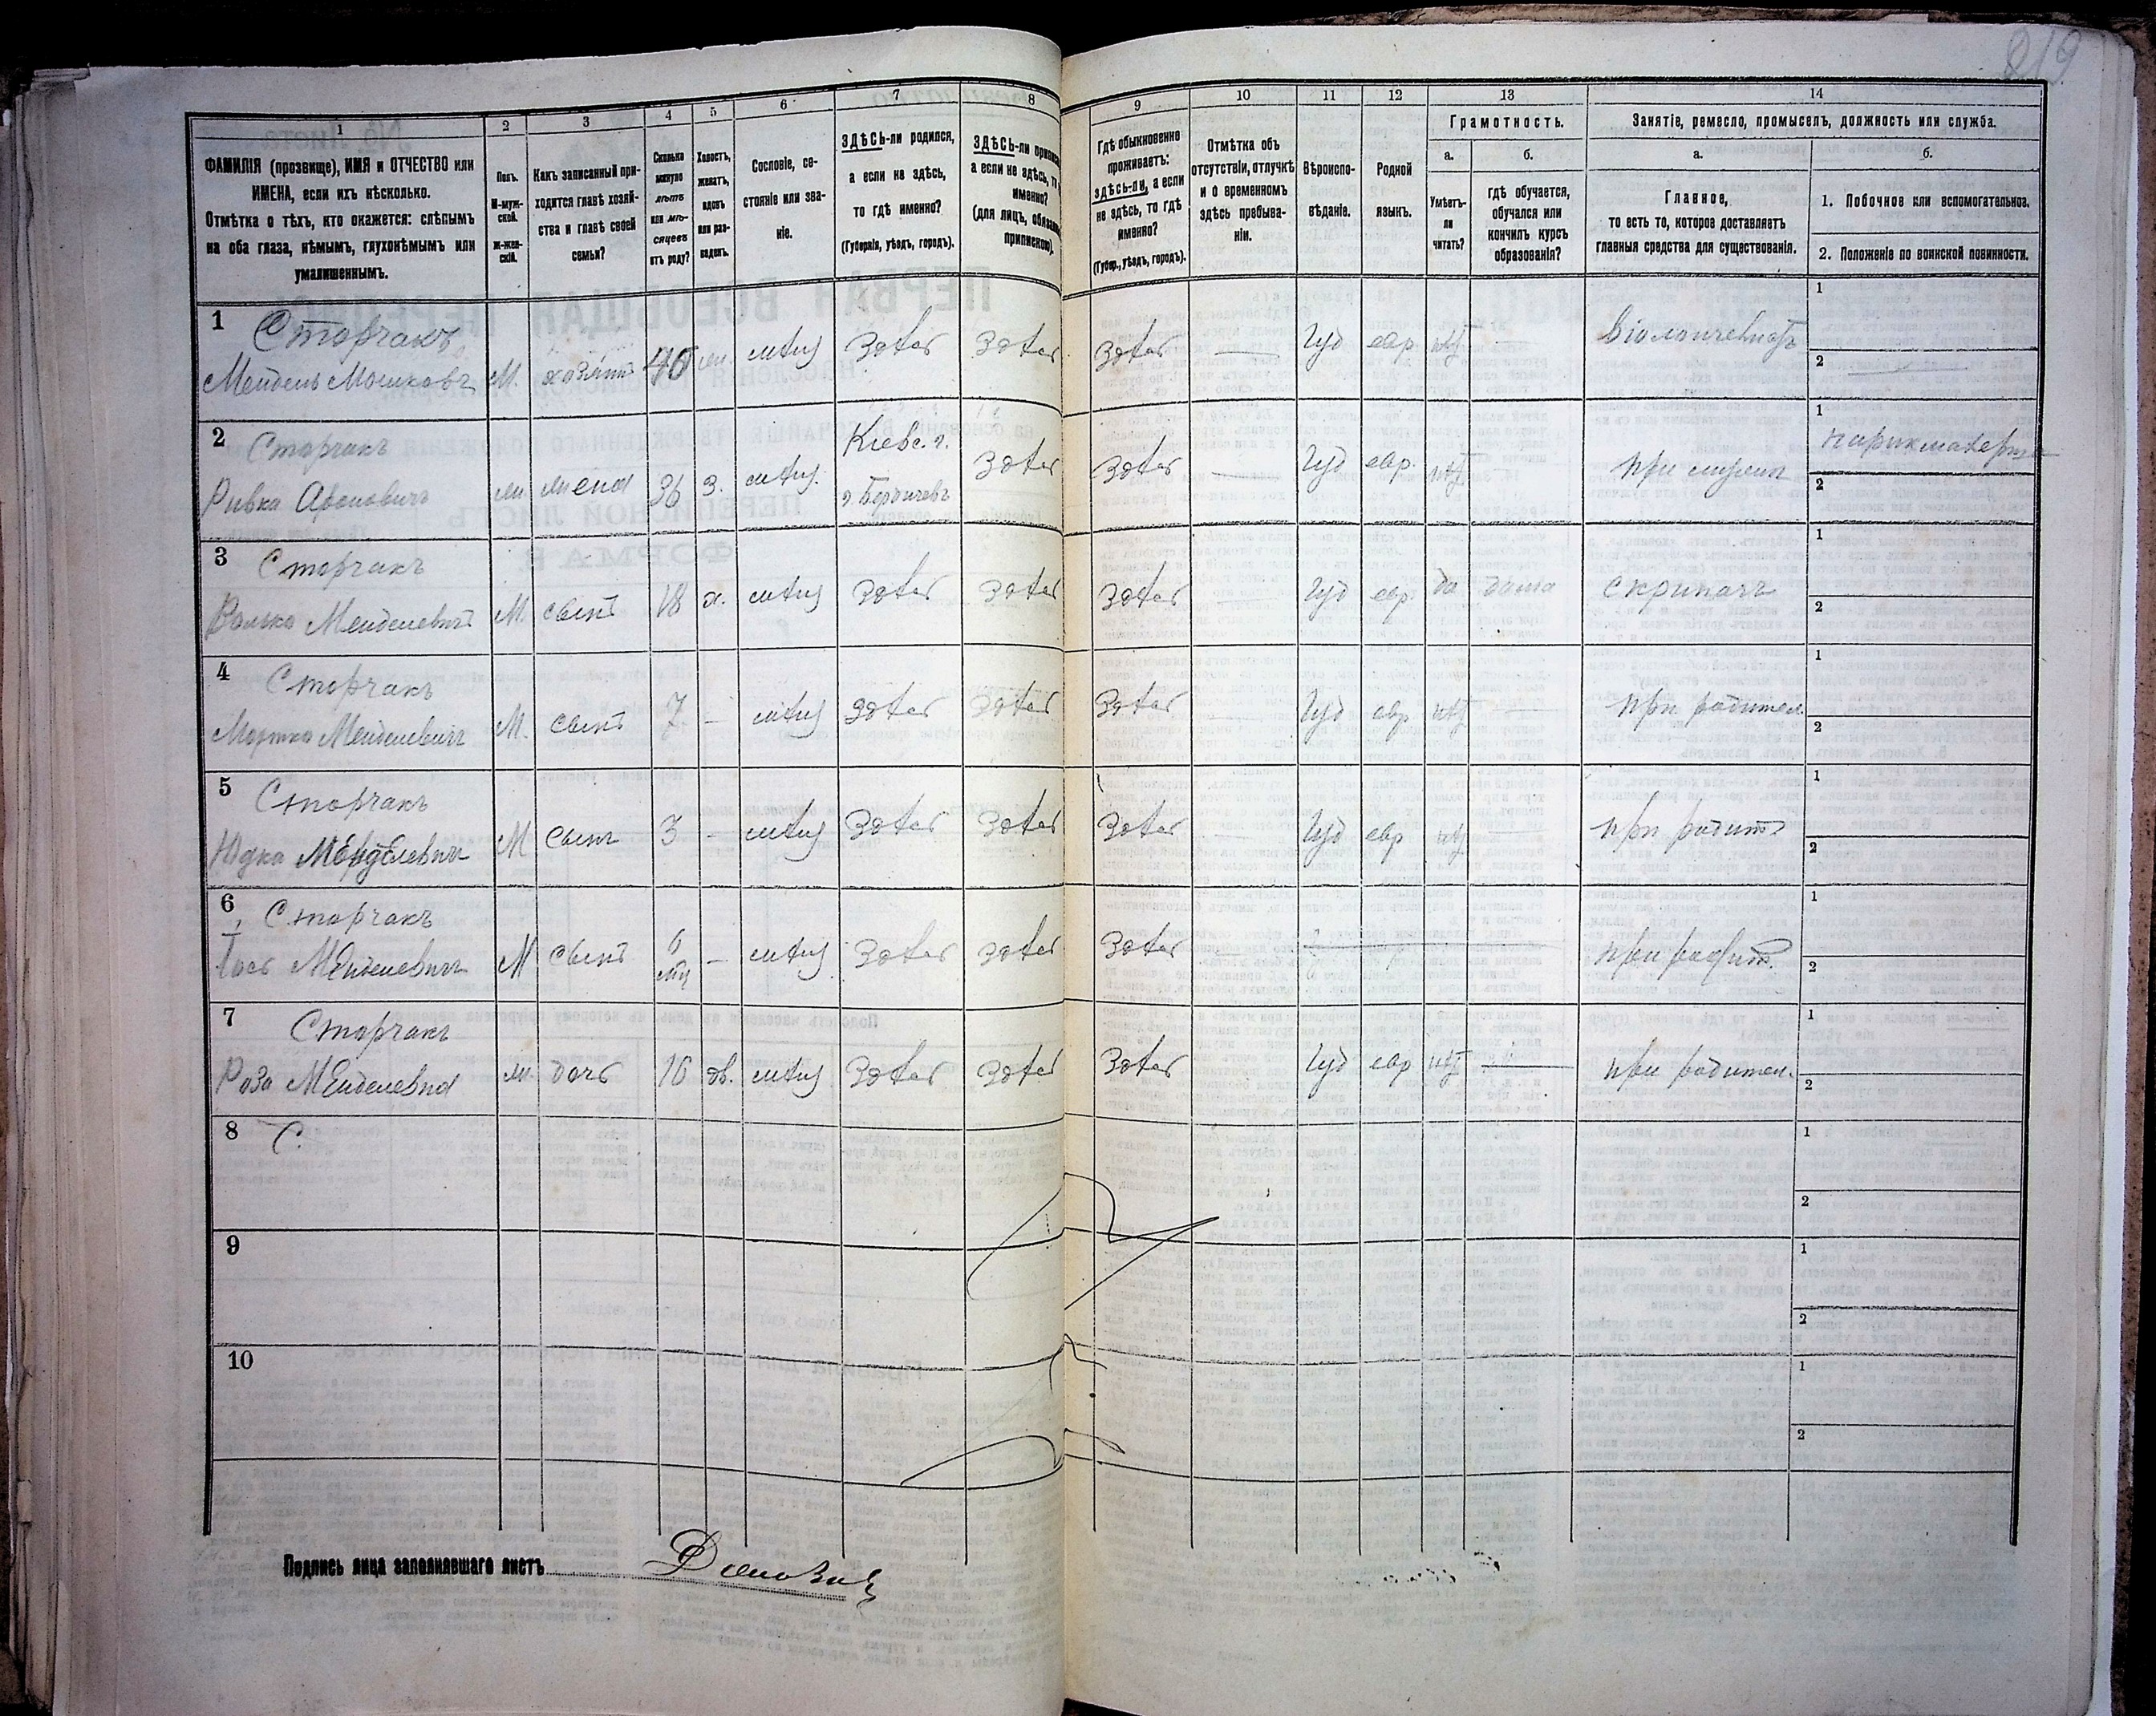 819
1 2 3 4 5 6 7 8 9 10 11 12 13 14
ФАМИЛІЯ (прозвище), ИМЯ и ОТЧЕСТВО или
ИМЕНА, если ихъ нѣсколько.
Отмѣтка о тѣхъ, кто окажется: слѣпымъ
на оба глаза, нѣмымъ, глухонѣмымъ или
умалишеннымъ.
Полъ.
М-муж-
ской.
Ж-жен-
скій.
Какъ записанный при-
ходится главѣ хозяй-
ства и главѣ своей
семьи?
Сколько
минуло
лѣтъ
или мѣ-
сяцевъ
отъ роду?
Холостъ,
женатъ,
вдовъ
или раз-
веденъ.
Сословіе, со-
стояніе или зва-
ніе.
ЗДѢСЬ-ли родился,
а если не здѣсь,
то гдѣ именно?
(Губернія, уѣздъ, городъ).
ЗДѢСЬ-ли
а если не здѣсь,
именно?
(для лицъ,
припискою).
Гдѣ обыкновенно
проживаетъ:
здѣсь-ли, а если
не здѣсь, то гдѣ
именно?
(Губер., уѣздъ, городъ).
Отмѣтка объ
отсутствіи, отлучкѣ
и о временномъ
здѣсь пребыва-
ніи.
Вѣроиспо-
вѣданіе.
Родной
языкъ.
Грамотность.
а.
Умѣетъ-
ли
читать?
б.
Гдѣ обучается,
обучался или
кончилъ курсъ
образованія?
Занятіе, ремесло, промыселъ, должность или служба.
а.
Главное,
то есть то, которое доставляетъ
главныя средства для существованія.
б.
1. Побочное или вспомогательное.
2. Положеніе по воинской повинности.
1 Сторчакъ
Мендель Мошковъ М. хозяинъ 40 мѣщ здѣсь здѣсь здѣсь — Іуд евр нѣт
1
2
2 Сторчакъ Кіевс. г.
Ривка Ароновичъ жена 36 з. мѣщ. г. Бердичевъ здѣсь здѣсь — Іуд евр. нѣт при муже
1
2
3 Сторчакъ
Менделевичъ М. сынъ 18 х. мѣщ здѣсь здѣсь здѣсь — Іуд евр. да дома скрипачъ
1
2
4 Сторчакъ
Мортко Менделевичъ М. сынъ 7 — мѣщ здѣсь здѣсь здѣсь — Іуд евр нѣт — при родител.
1
2
5 Сторчакъ
Юдка Менделевичъ М сынъ 3 — мѣщ здѣсь здѣсь здѣсь — Іуд евр нѣт при родит
1
2
6 Сторчакъ
Іось Менделевичъ М сынъ 6 мѣц — мѣщ здѣсь здѣсь здѣсь — при родит.
1
2
7 Сторчакъ
Роза Менделевна ж. дочь 16 дв. мѣщ здѣсь здѣсь здѣсь Іуд евр нѣт — при родител.
1
2
8 С.
1
2
9
1
2
10
1
2
Подпись лица заполнявшаго листъ